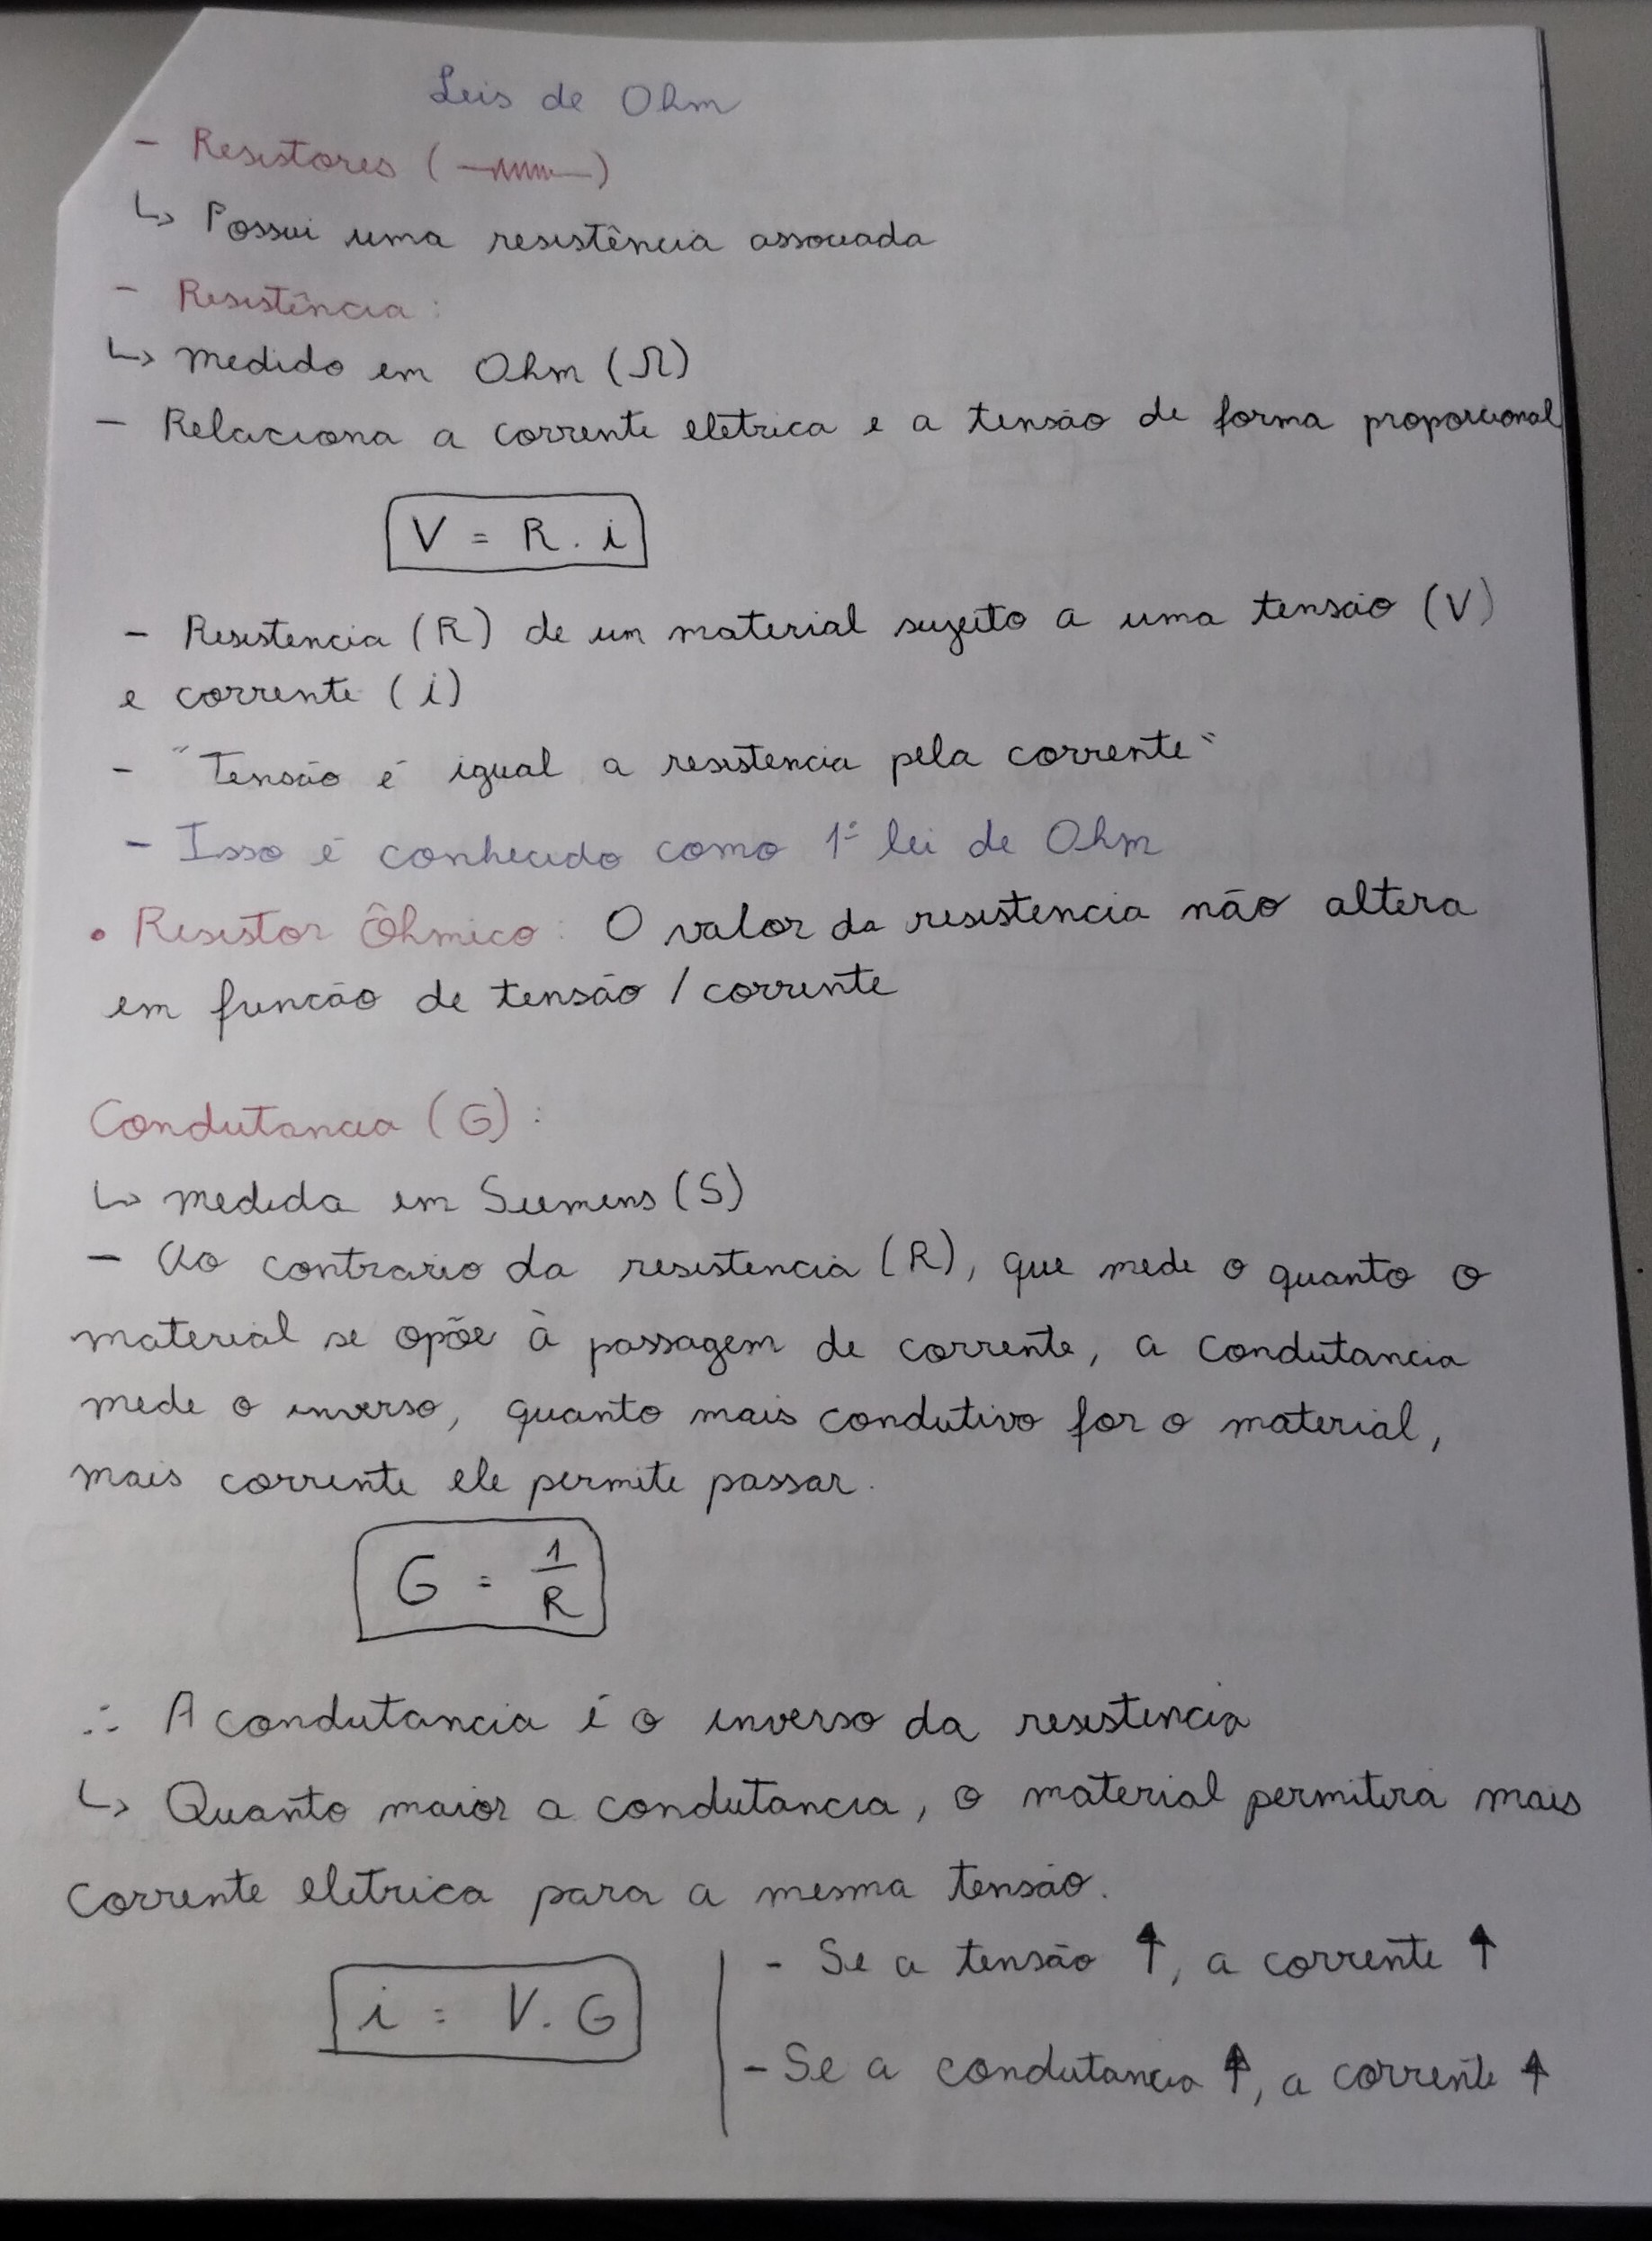 Leis de Ohm
- Resistores ( )
↳ Possui uma resistência associada
- Resistência:
↳ medido em Ohm (Ω)
- Relaciona a corrente eletrica e a tensão de forma proporcional
V = R . i
- Resistencia (R) de um material sujeito a uma tensão (V)
e corrente (i)
- "Tensão é igual a resistencia pela corrente"
- Isso é conhecido como 1ª lei de Ohm
• Resistor Ôhmico: O valor da resistencia não altera
em funcão de tensão / corrente
Condutancia (G):
↳ medida em Siemens (S)
- Ao contrario da resistencia (R), que mede o quanto o
material se opõe à passagem de corrente, a condutancia
mede o inverso, quanto mais condutivo for o material,
mais corrente ele permite passar.
G = 1/R
∴ A condutancia é o inverso da resistencia
↳ Quanto maior a condutancia, o material permitira mais
corrente eletrica para a mesma tensão.
- Se a tensão ↑, a corrente ↑
i = V. G
- Se a condutancia ↑, a corrente ↑